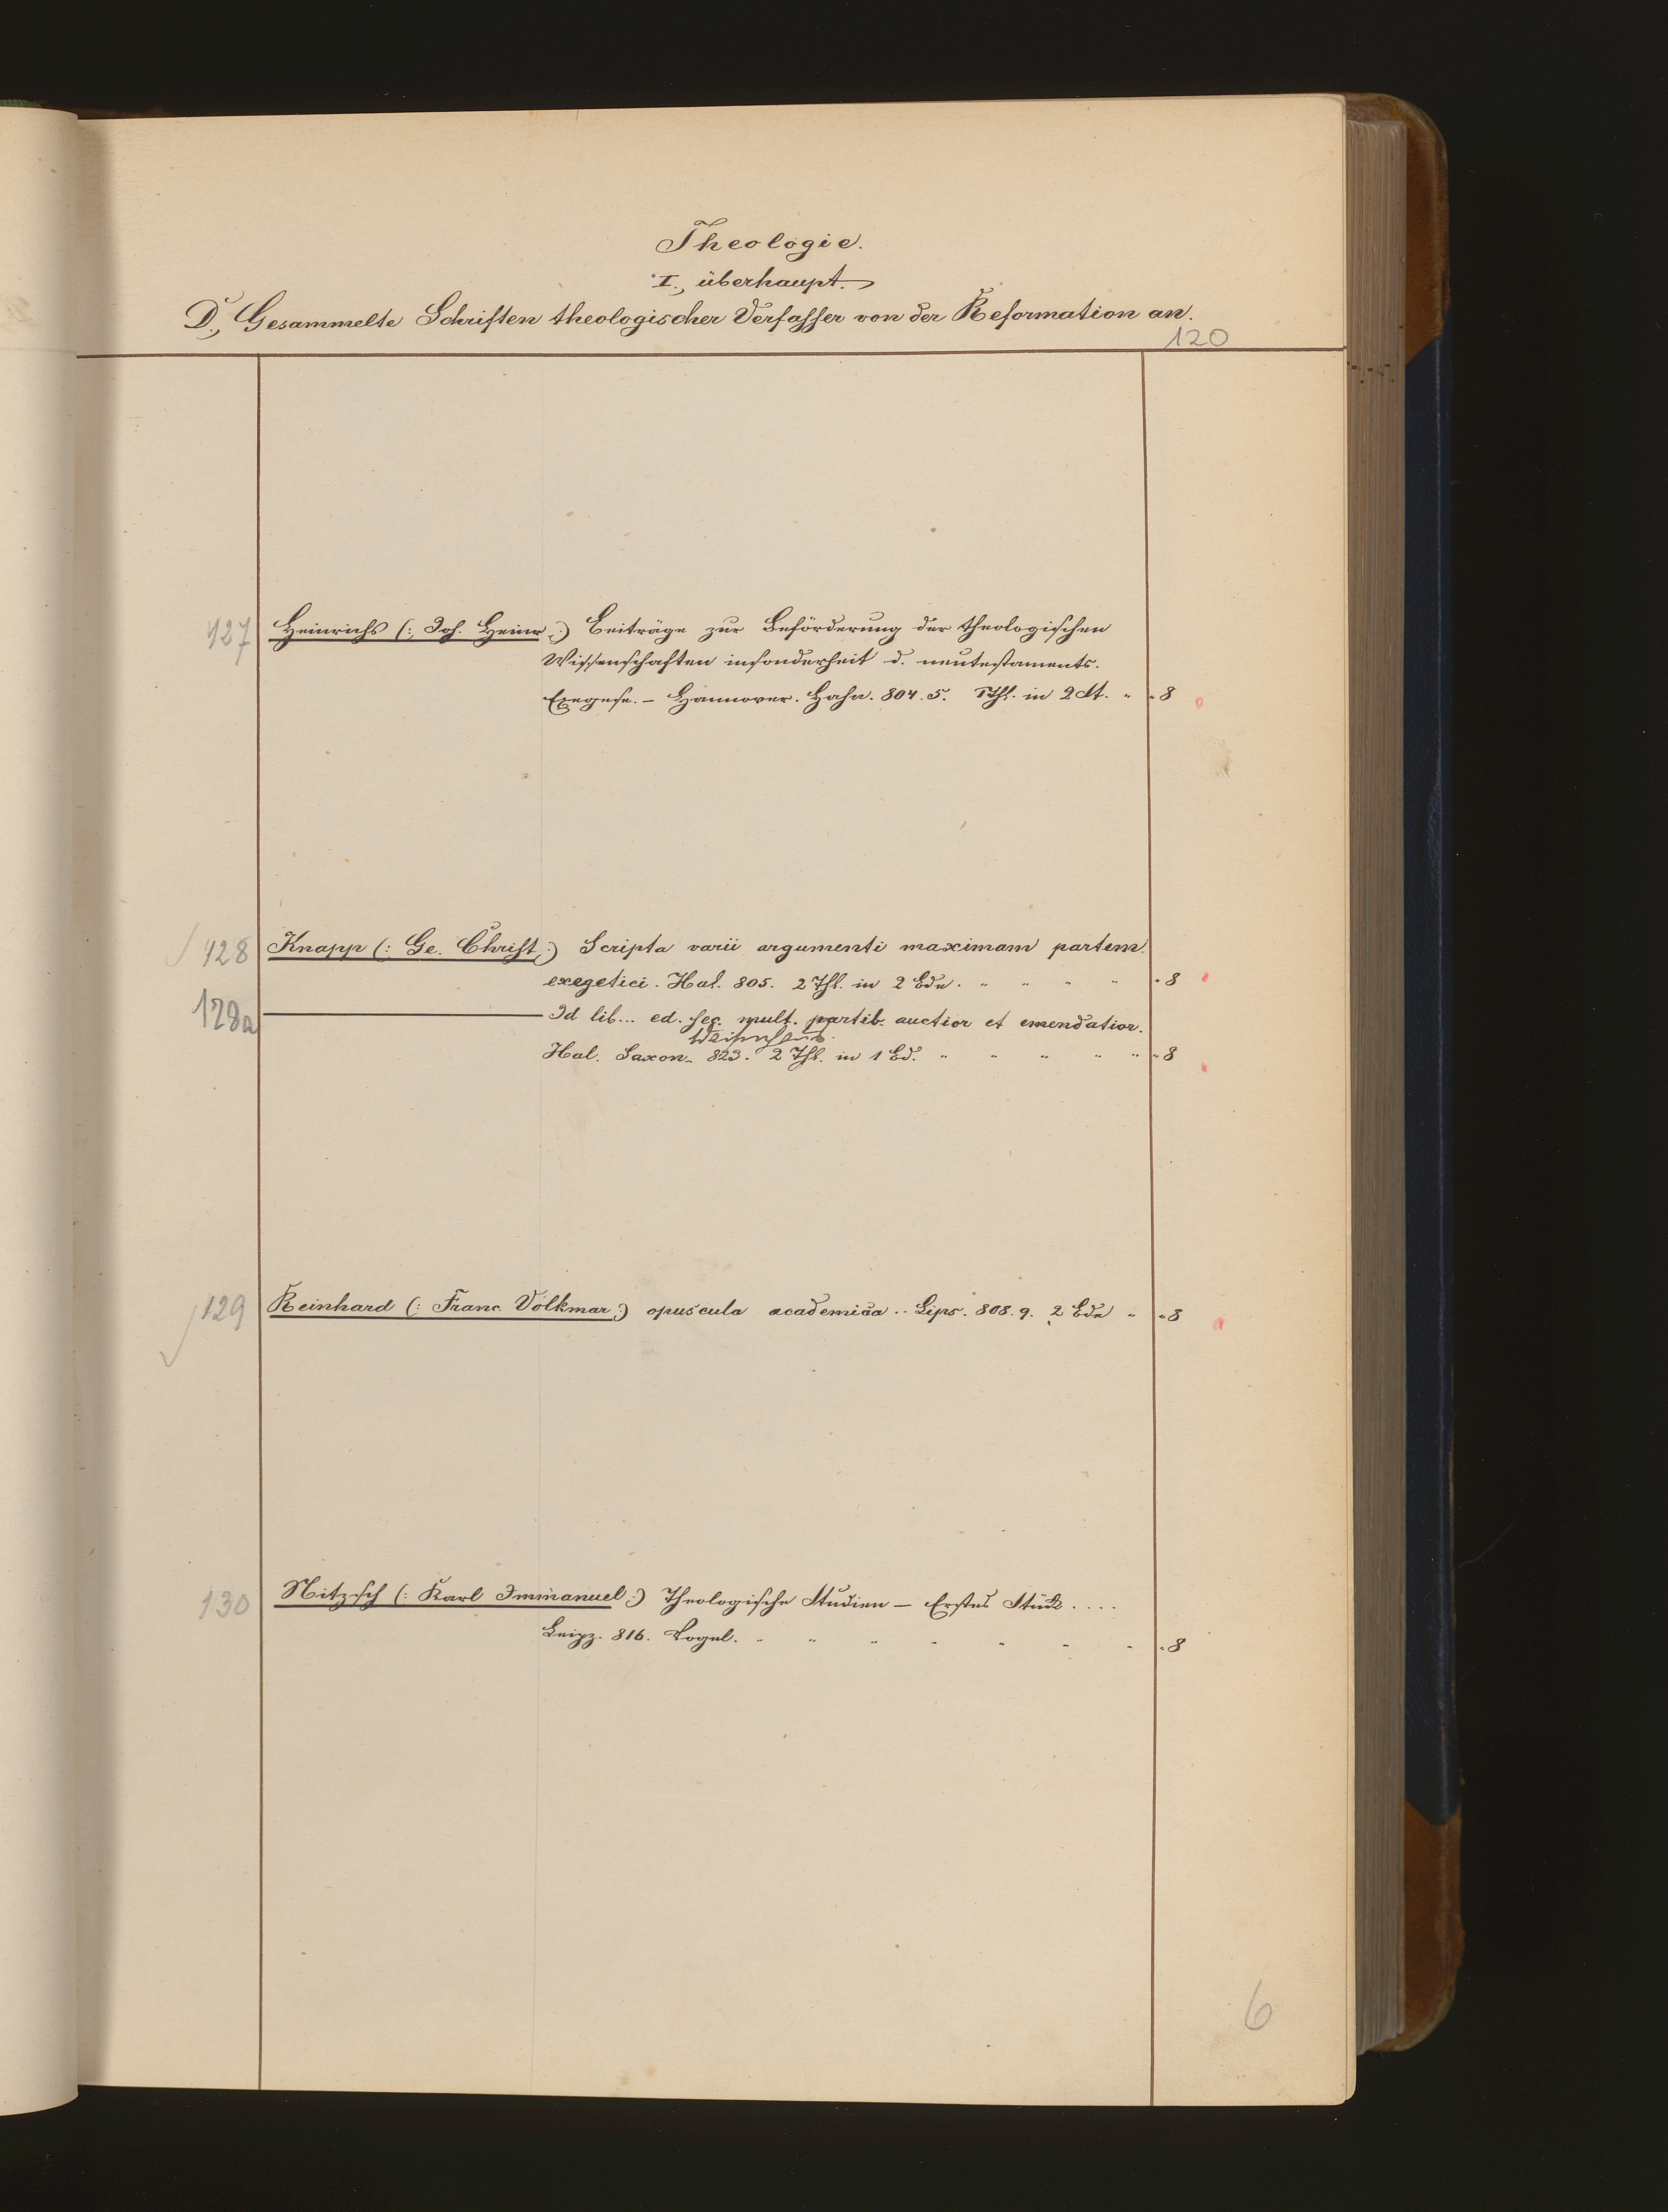 Theologie.
I., überhaupt.
D., Gesammelte Schriften theologischer Verfasser von der Reformation an.
120
127 Heinrichs (: Joh. Heinr :) Beiträge zur Beförderung der theologischen
Wissenschaften insonderheit d. neutestaments.
Exegese. – Hannover. Hahn. 804. 5. 1 Thl. in 2 St. " " 8
128 Knapp (: Ge. Christ :) Scripta varii argumenti maximam partem
exegetici. Hal. 805. 2 Thl. in 2 Bdn. " " " " " 8
128a Id lib... ed. sec. mult. partib. auctior et emendatior.
Hal. Saxon.. 823. 2 Thl. in 1 Bd. " " " " " " 8
129 Reinhard (: Franc. Volkmar :) opuscula academica .. Lips. 808. 9. 2 Bde " " 8
130 Nitzsch (: Karl Immanuel :) Theologische Studien – Erstes Stück ....
Leipz. 816. Vogel. " " " " " " " " 8
6